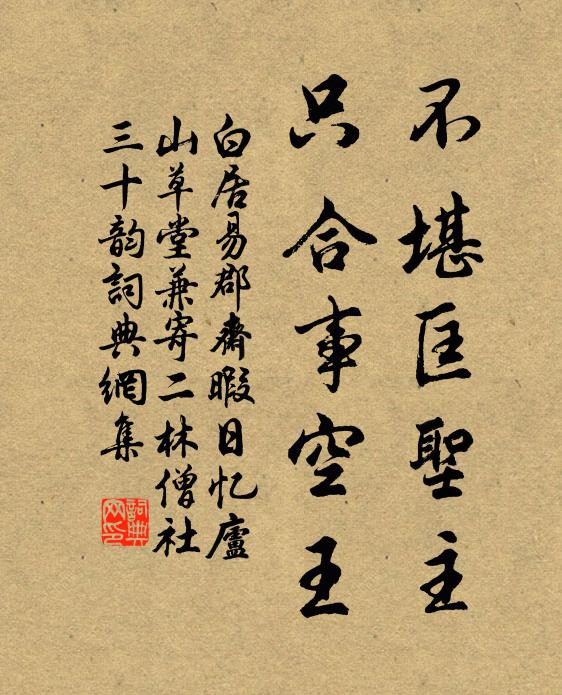 不堪匡聖主
只合事空王
白居易郡齋暇日忆廬
山草堂兼寄二林僧社
三十韵詞典網集
詞典
网印